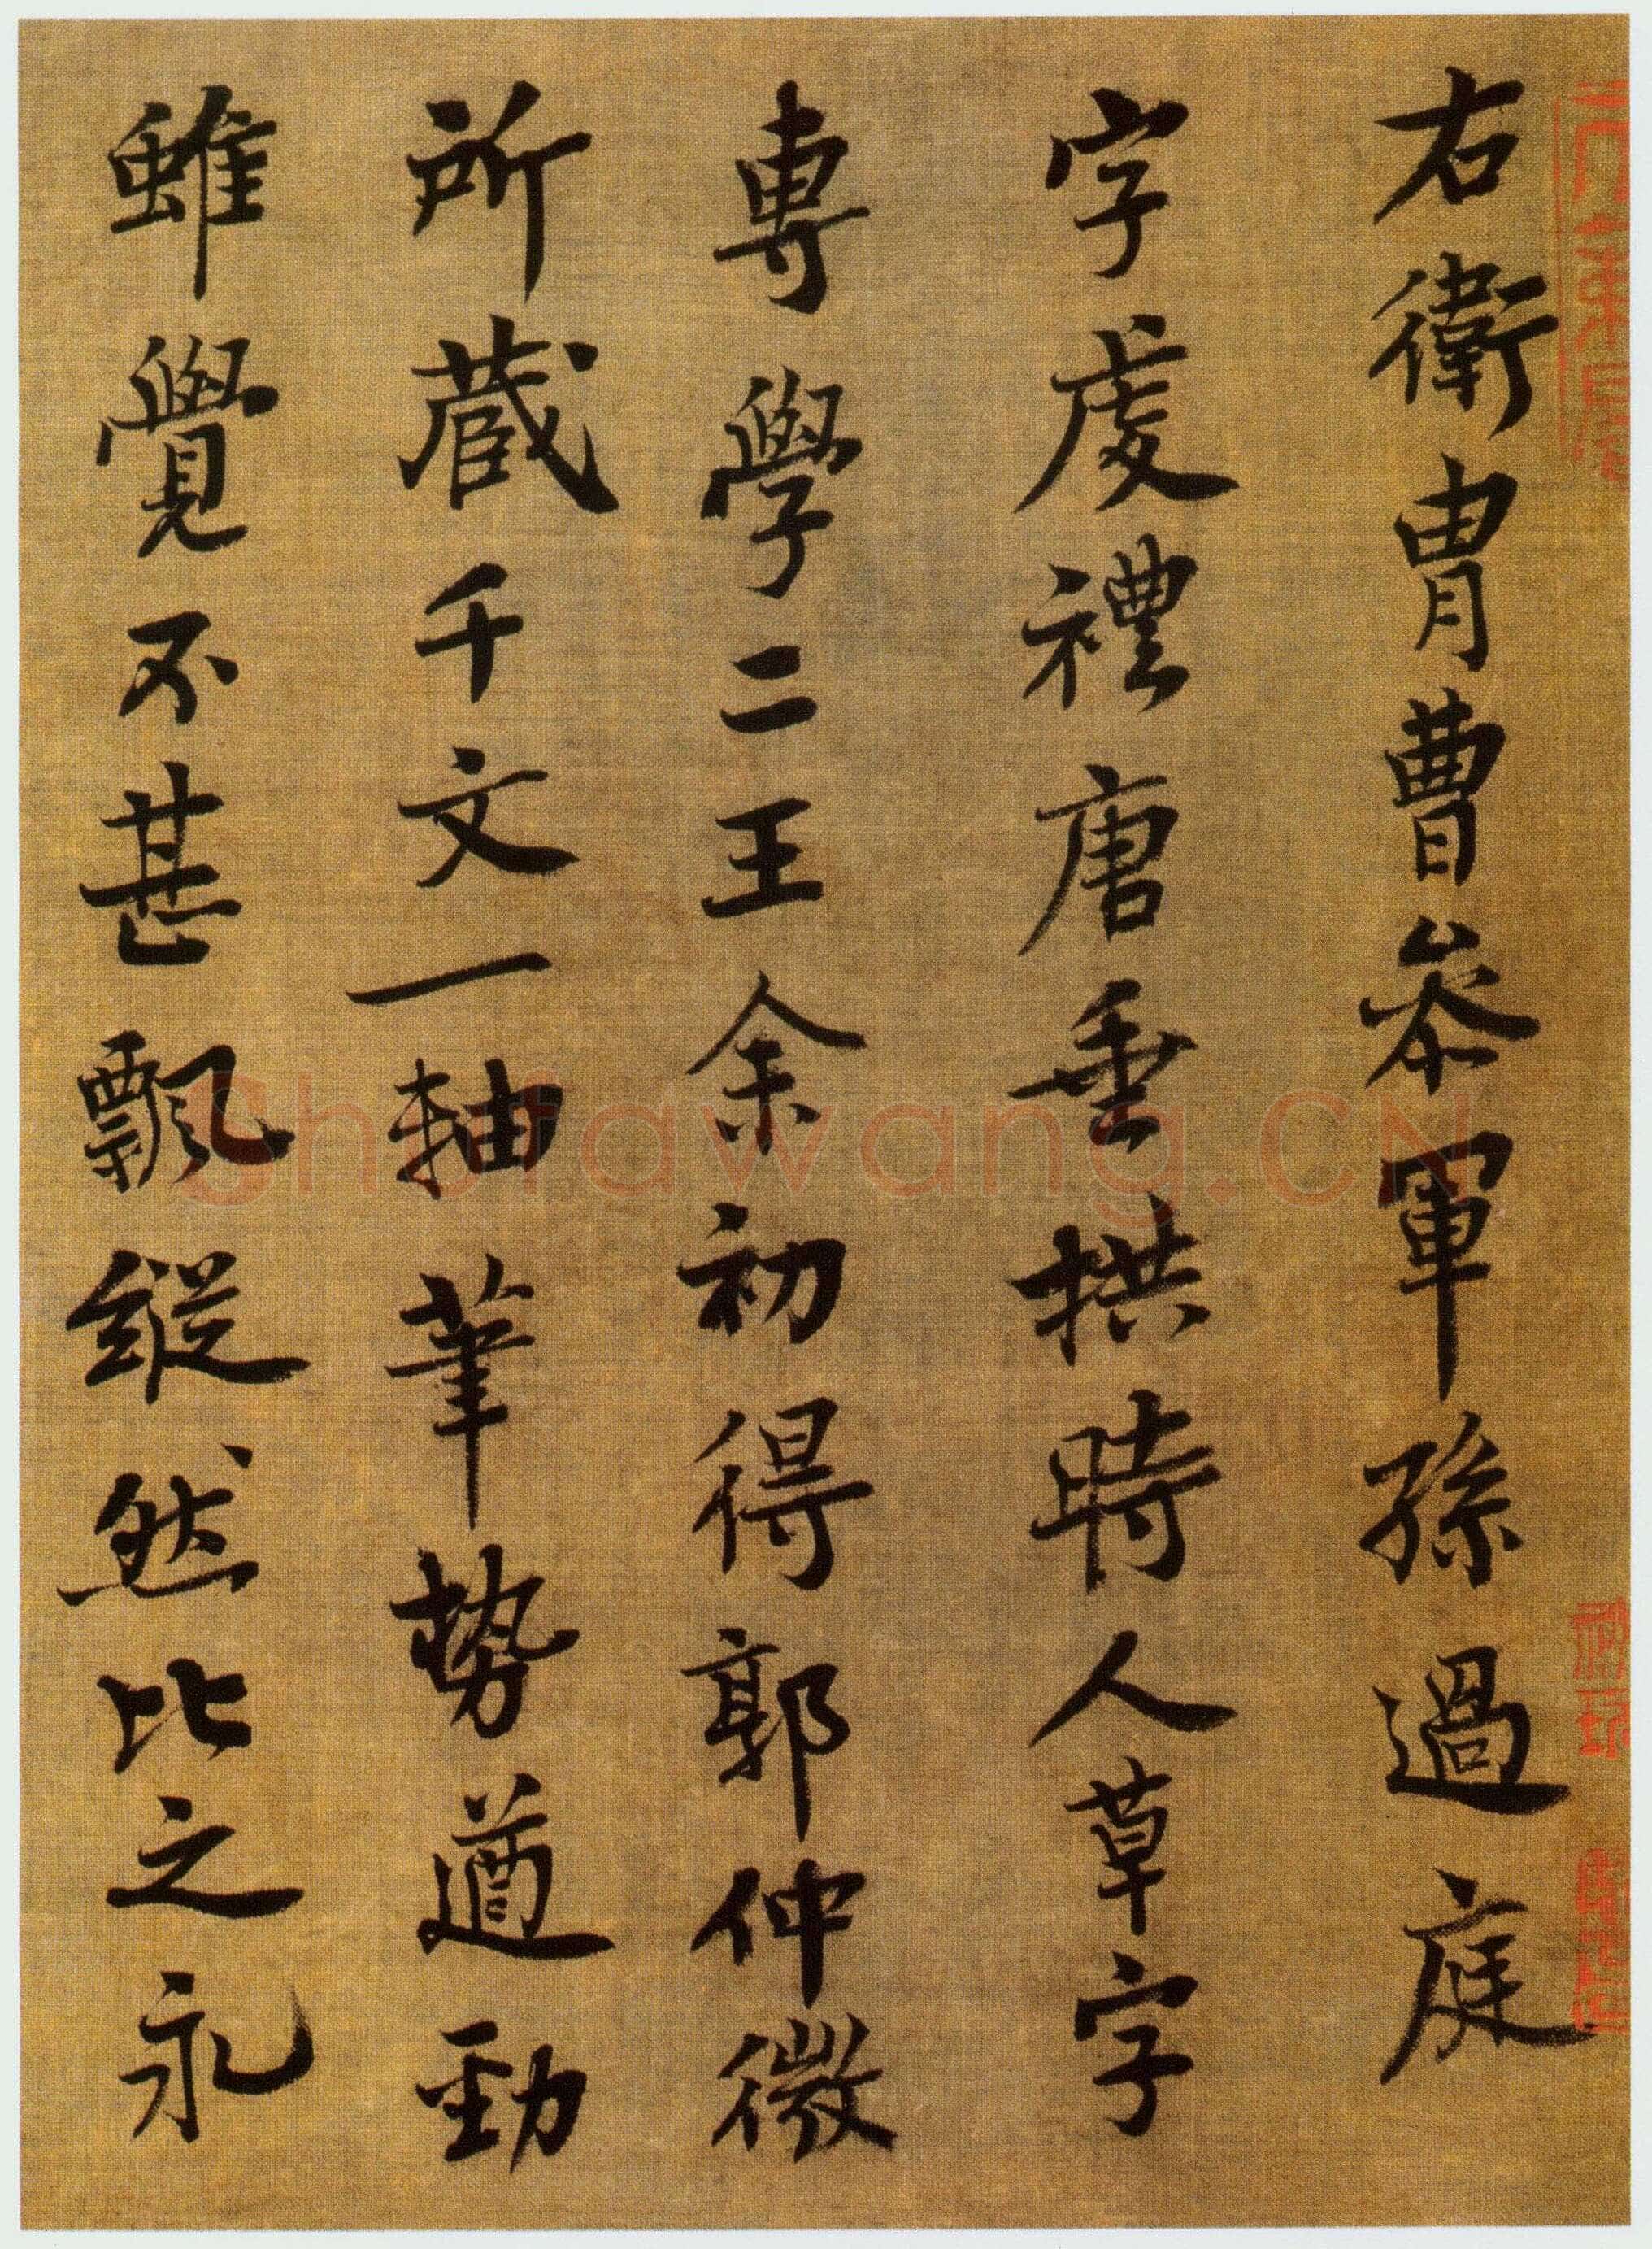 右衛胄曹參軍孫過庭
字虔禮唐垂拱時人草字
專學二王余初得郭仲微
所藏千文一軸筆勢遒勁
雖覺不甚飄縱然比之永
Shufawang.CN